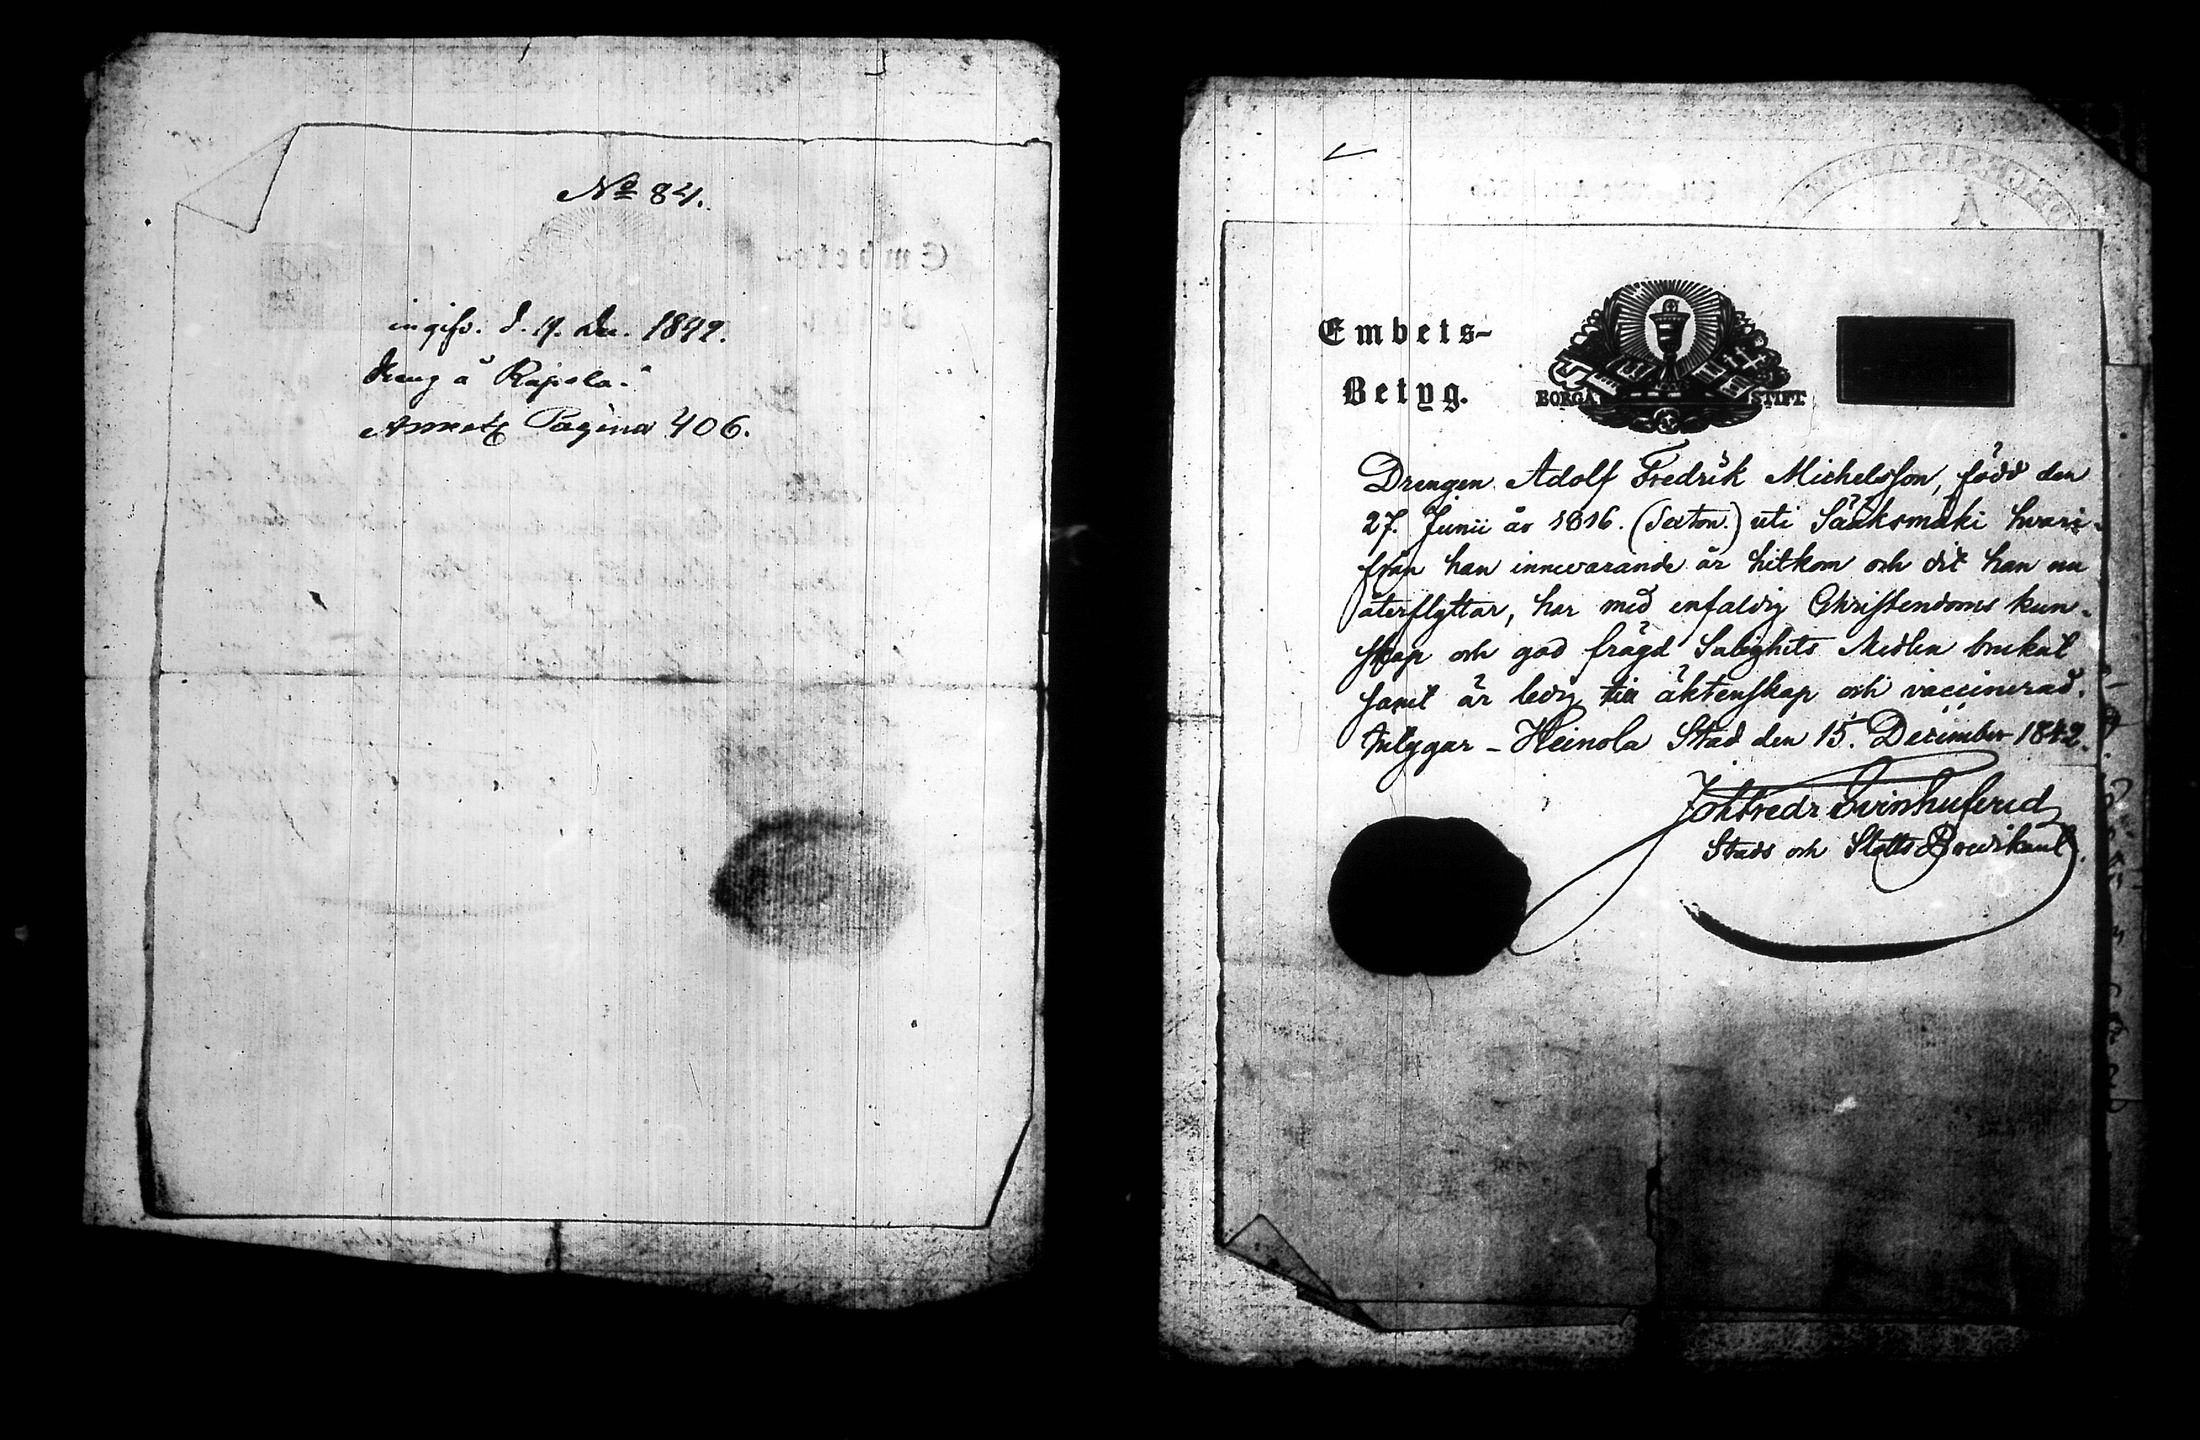 No 84.
ingifv. d. 19. Dec. 1842.
Dreng å Rapola.
Annot. Pagina 406.
Embets-
Betyg.
BORGÅ STIFT
Drengen Adolf Fredrik Michelsson, född den
27. Junii år 1816. (Sexton.) uti Sääksmäki hvari-
från han innevarande år hitkom och dit han nu
återflyttar, har med enfaldig Christendoms kun-
skap och god frägd Salighets Medlen brukat
samt är ledig till äktenskap och vaccinerad.
Intygar - Heinola Stad den 15. December 1842.
Joh Fredr Svinhufvud
Stads och Slotts Predikant.